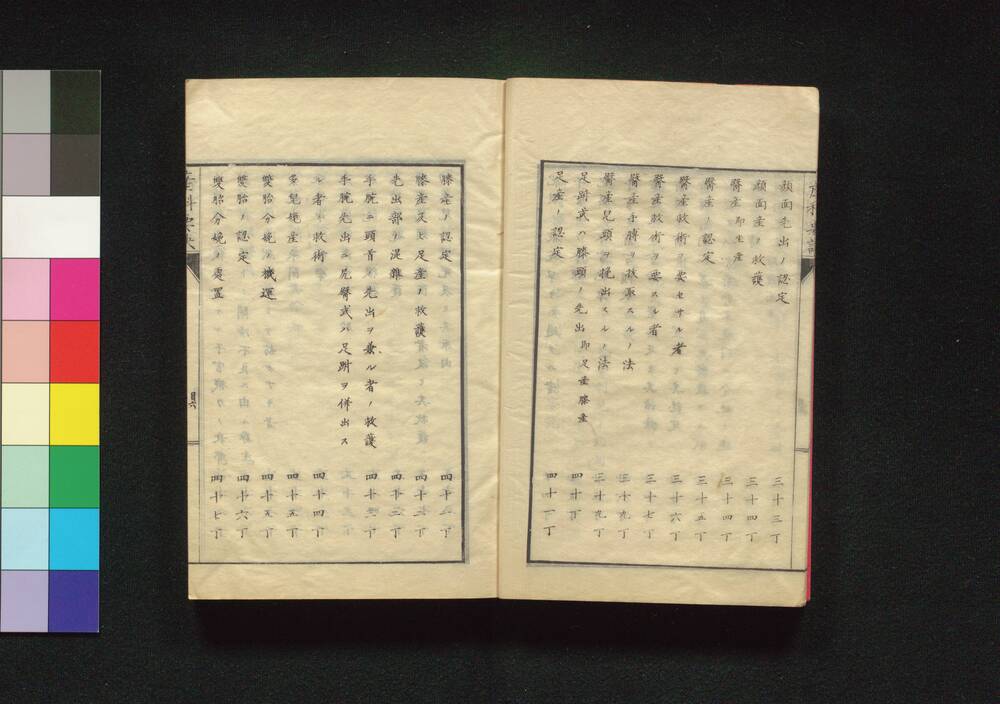 顔面先出ノ認定 三十三丁
顔面産ノ救護 三十四丁
臀産即坐産 三十四丁
臀産ノ認定 三十五丁
臀産救術ヲ要セサル者 三十六丁
臀産救術ヲ要スル者 三十七丁
臀産手膊ヲ抜取スルノ法 三十九丁
臀産児頭ヲ挽出スルノ法 三十九丁
足跗或ハ膝頭ノ先出即足産膝産 四十丁
足産ノ認定 四十一丁
膝産ノ認定 四十一丁
膝産及ヒ足産ノ救護 四十二丁
先出部ノ混雑 四十二丁
手腕ニ頭首ノ先出ヲ兼ル者ノ救護
手腕先出ニ尻臀或ハ足跗ヲ併出ス
ル者ノ救術 四十四丁
多児娩産 四十五丁
雙胎分娩ノ機運 四十五丁
雙胎ノ認定 四十六丁
雙胎分娩ノ處置 四十七丁
産科要訣